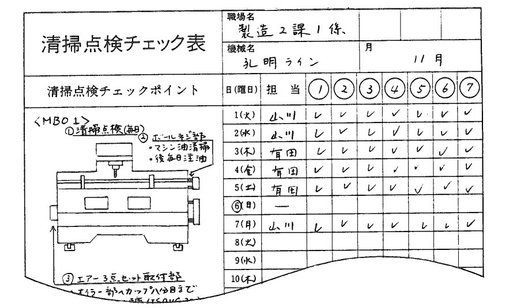 清掃点検チェック表
職場名
製造2課1係
機械名
孔明ライン
月
11月
清掃点検チェックポイント
日(曜日) 担 当 ① ② ③ ④ ⑤ ⑥ ⑦
1(火) 山川 ✓ ✓ ✓ ✓ ✓ ✓ ✓
2(水) 山川 ✓ ✓ ✓ ✓ ✓ ✓ ✓
3(木) 有田 ✓ ✓ ✓ ✓ ✓ ✓ ✓
4(金) 有田 ✓ ✓ ✓ ✓ • ✓ ✓
5(土) 有田 ✓ ✓ ✓ ✓ ✓ ✓ ✓
⑥(日) —
7(月) 山川 ✓ ✓ ✓ ✓ ✓ ✓ ✓
8(火)
9(水)
10(木)
<MB01>
①清掃点検(毎日)
②ボールネジ部
・マシン油清掃
・後毎日注油
③エアー3点セット取付部